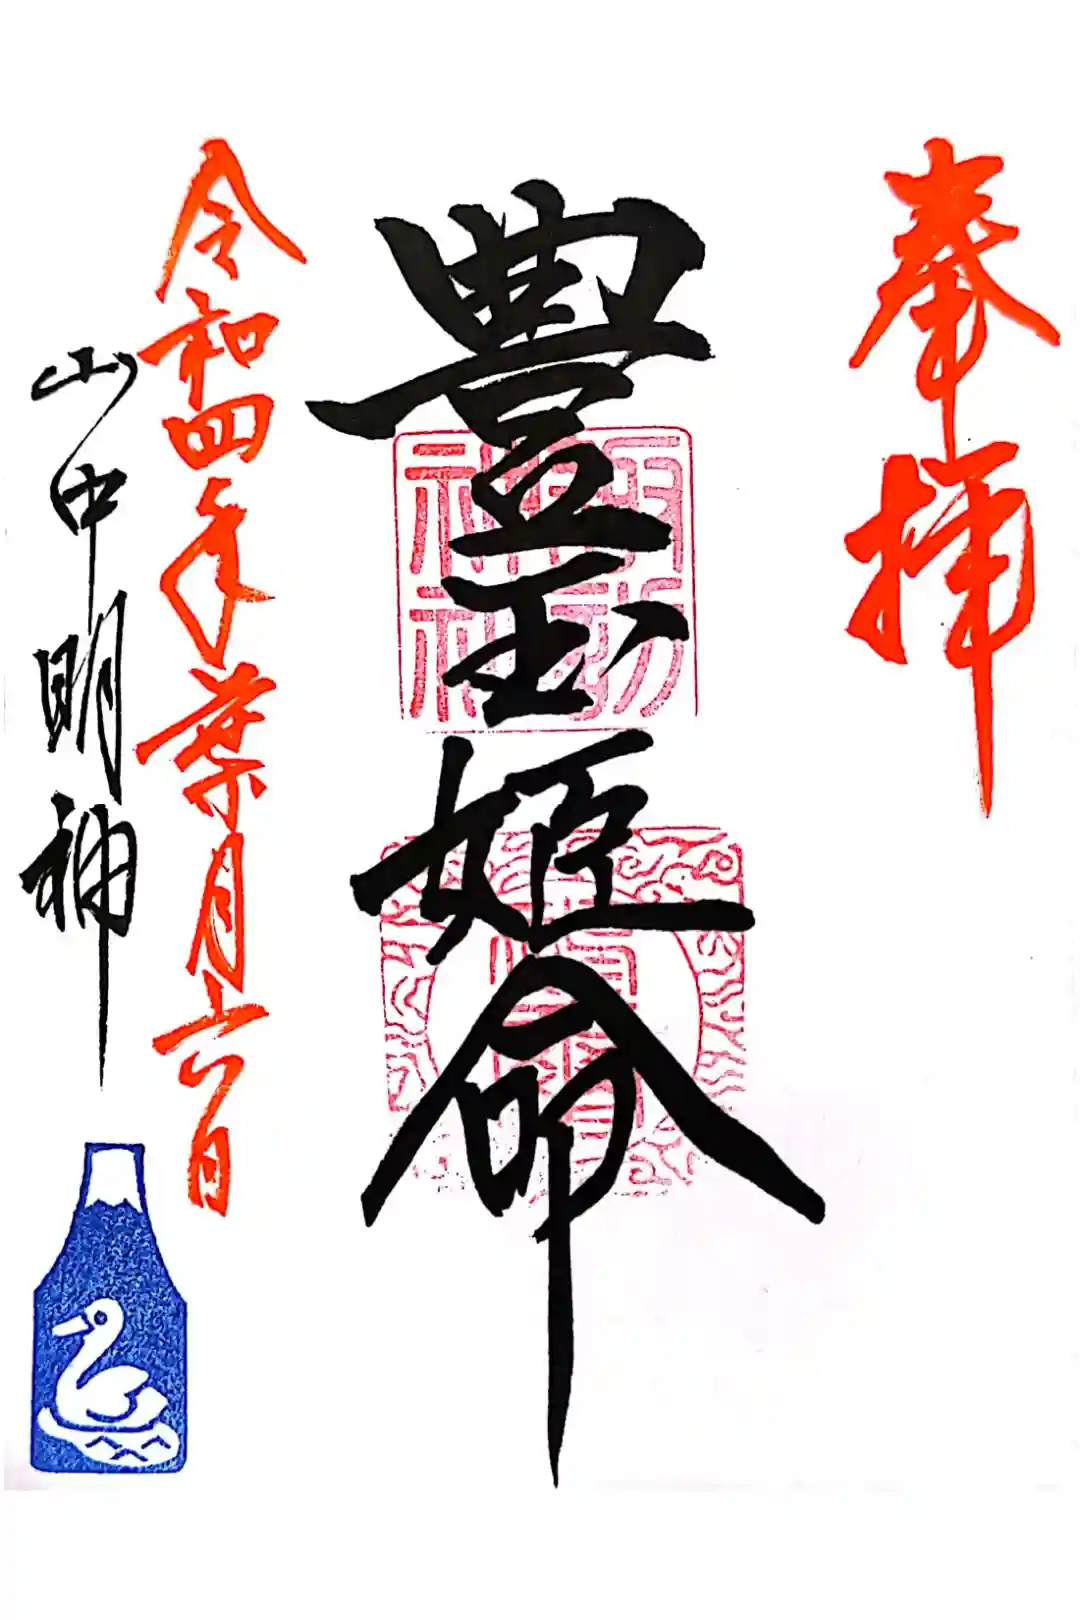 奉拝
豊玉姫命
令和四年葉月六日
山中明神